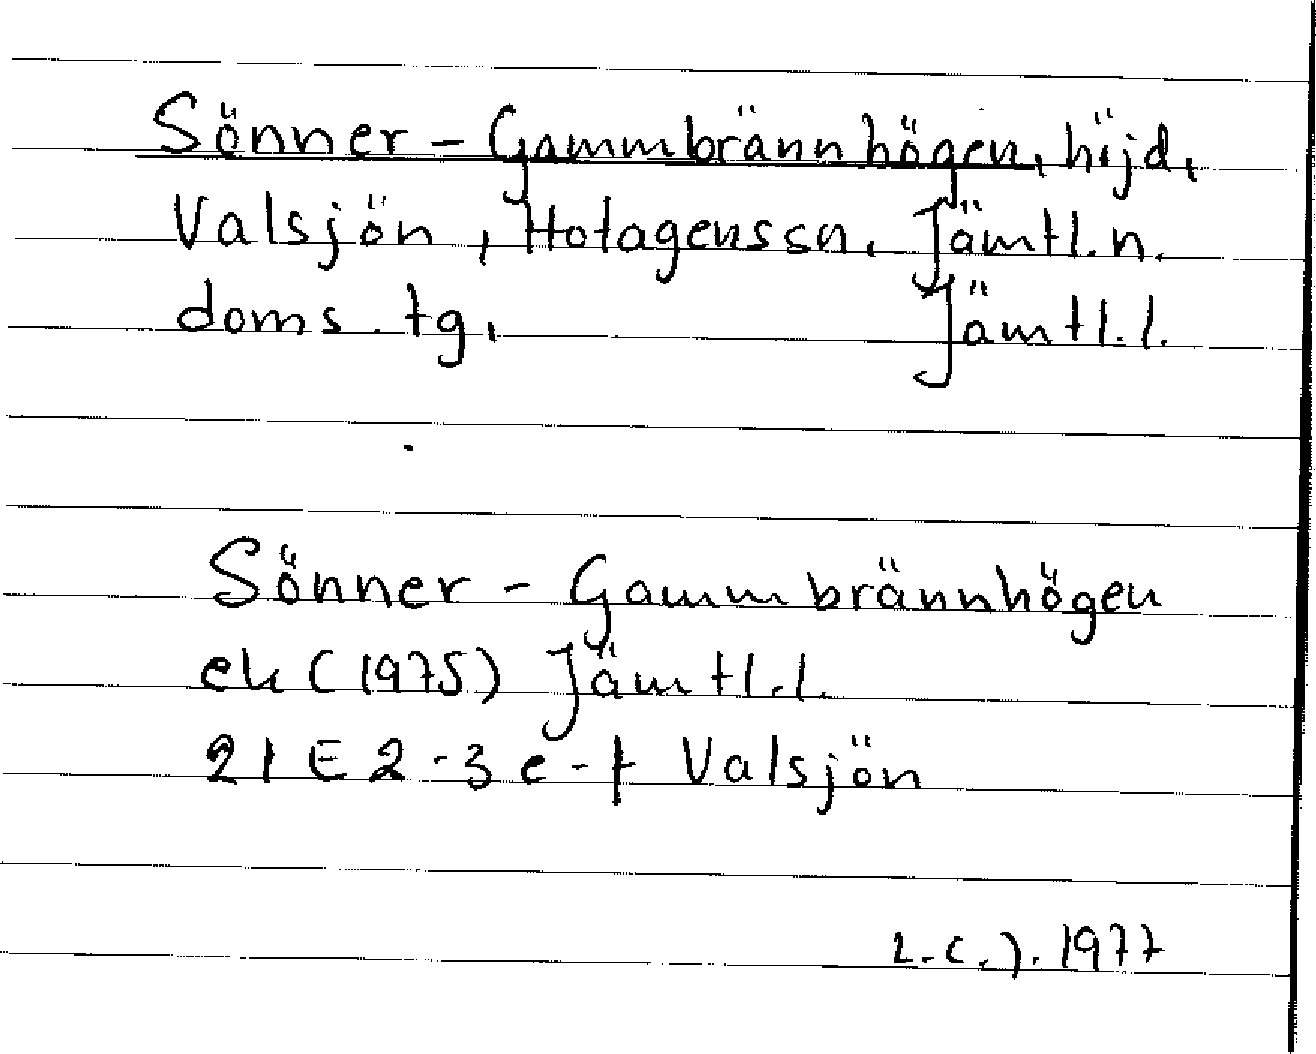 Sönner - Gammbrännhögen, höjd,
Valsjön, Hotagenssn. Jämtl. n.
doms. tg. Jämtl. l.
Sönner - Gammbrännhögen
ek (1975) Jämtl. l.
21 E 2-3 e-f Valsjön
L.C.J. 1977